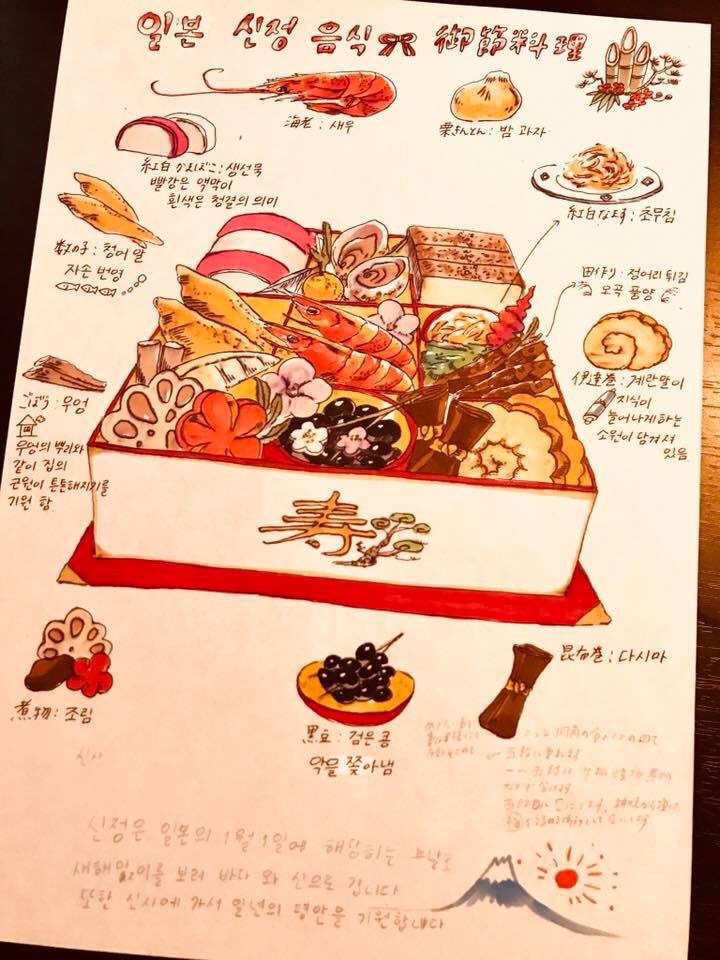 일본 신정 음식 御節料理
海老 : 새우
栗きんとん : 밤 과자
紅白 かまぼこ : 생선묵
빨강은 액막이
흰색은 청결의 의미
紅白なます : 초무침
数の子 : 청어 알
자손 번영
田作り : 정어리 튀김
오곡 풍양
伊達巻 : 계란말이
지식이
늘어나게하는
소원이 담겨져
있음
ごぼう : 우엉
우엉의 뿌리와
같이 집의
근원이 튼튼해지기를
기원 함.
寿
煮物 : 조림
黒豆 : 검은 콩
악을 쫓아냄
昆布巻 : 다시마
신사
신정은 일본의 1월 1일에 해당하는
새해맞이를 보러 바다 와 산으로 갑니다
또한 신사에 가서 일년의 평안을 기원합니다